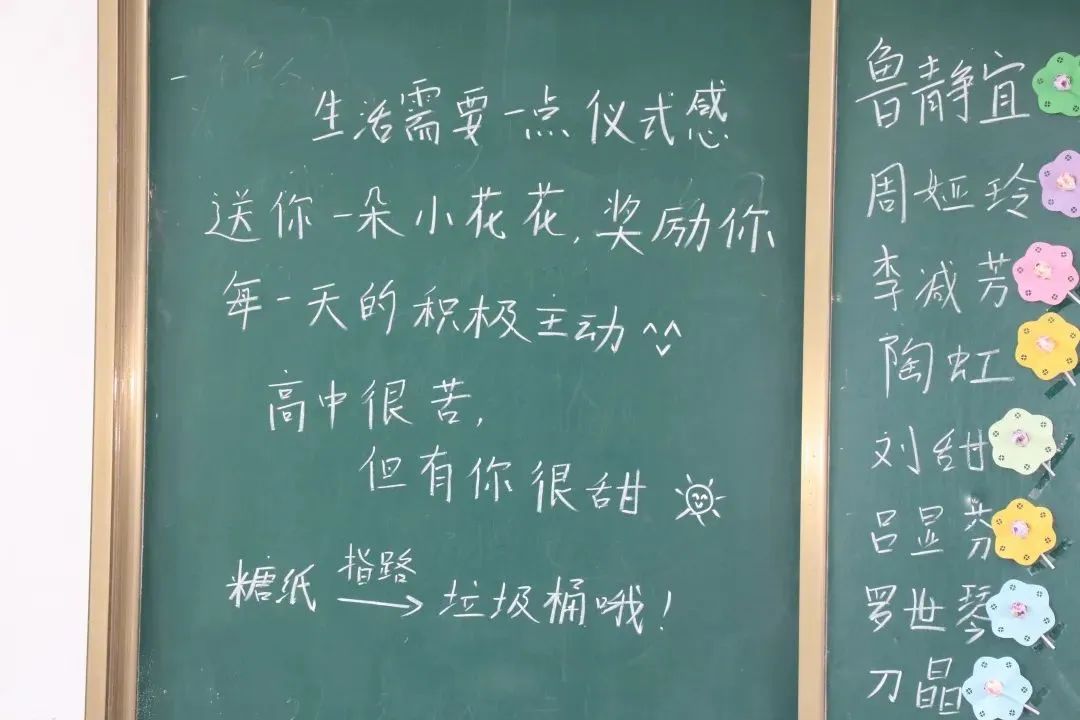 生活需要一点仪式感
送你一朵小花花,奖励你
每一天的积极主动^^
高中很苦,
但有你很甜
糖纸 指路→ 垃圾桶哦!
鲁静宜
周娅玲
李减芳
陶虹
刘甜
吕显芬
罗世琴
刀晶